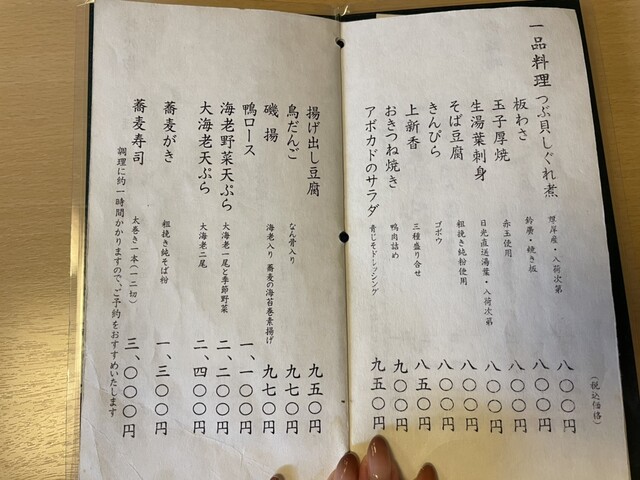 (税込価格)
一品料理
つぶ貝しぐれ煮 厚岸産・入荷次第 八〇〇円
板わさ 鈴廣・焼き板 八〇〇円
玉子厚焼 赤玉使用 八〇〇円
生湯葉刺身 日光直送湯葉・入荷次第 八〇〇円
そば豆腐 粗挽き純粉使用 八〇〇円
きんぴら ゴボウ 八〇〇円
上新香 三種盛り合せ 八五〇円
おきつね焼き 鴨肉詰め 九〇〇円
アボカドのサラダ 青じそドレッシング 九五〇円
揚げ出し豆腐 九五〇円
鳥だんご なん骨入り 九七〇円
磯揚 海老入り 蕎麦の海苔巻素揚げ 九七〇円
鴨ロース 一、一〇〇円
海老野菜天ぷら 大海老一尾と季節野菜 二、二〇〇円
大海老天ぷら 大海老二尾 二、四〇〇円
蕎麦がき 粗挽き純そば粉 一、三〇〇円
蕎麦寿司 太巻き一本(一二切) 三、〇〇〇円
調理に約一時間かかりますので、ご予約をおすすめいたします